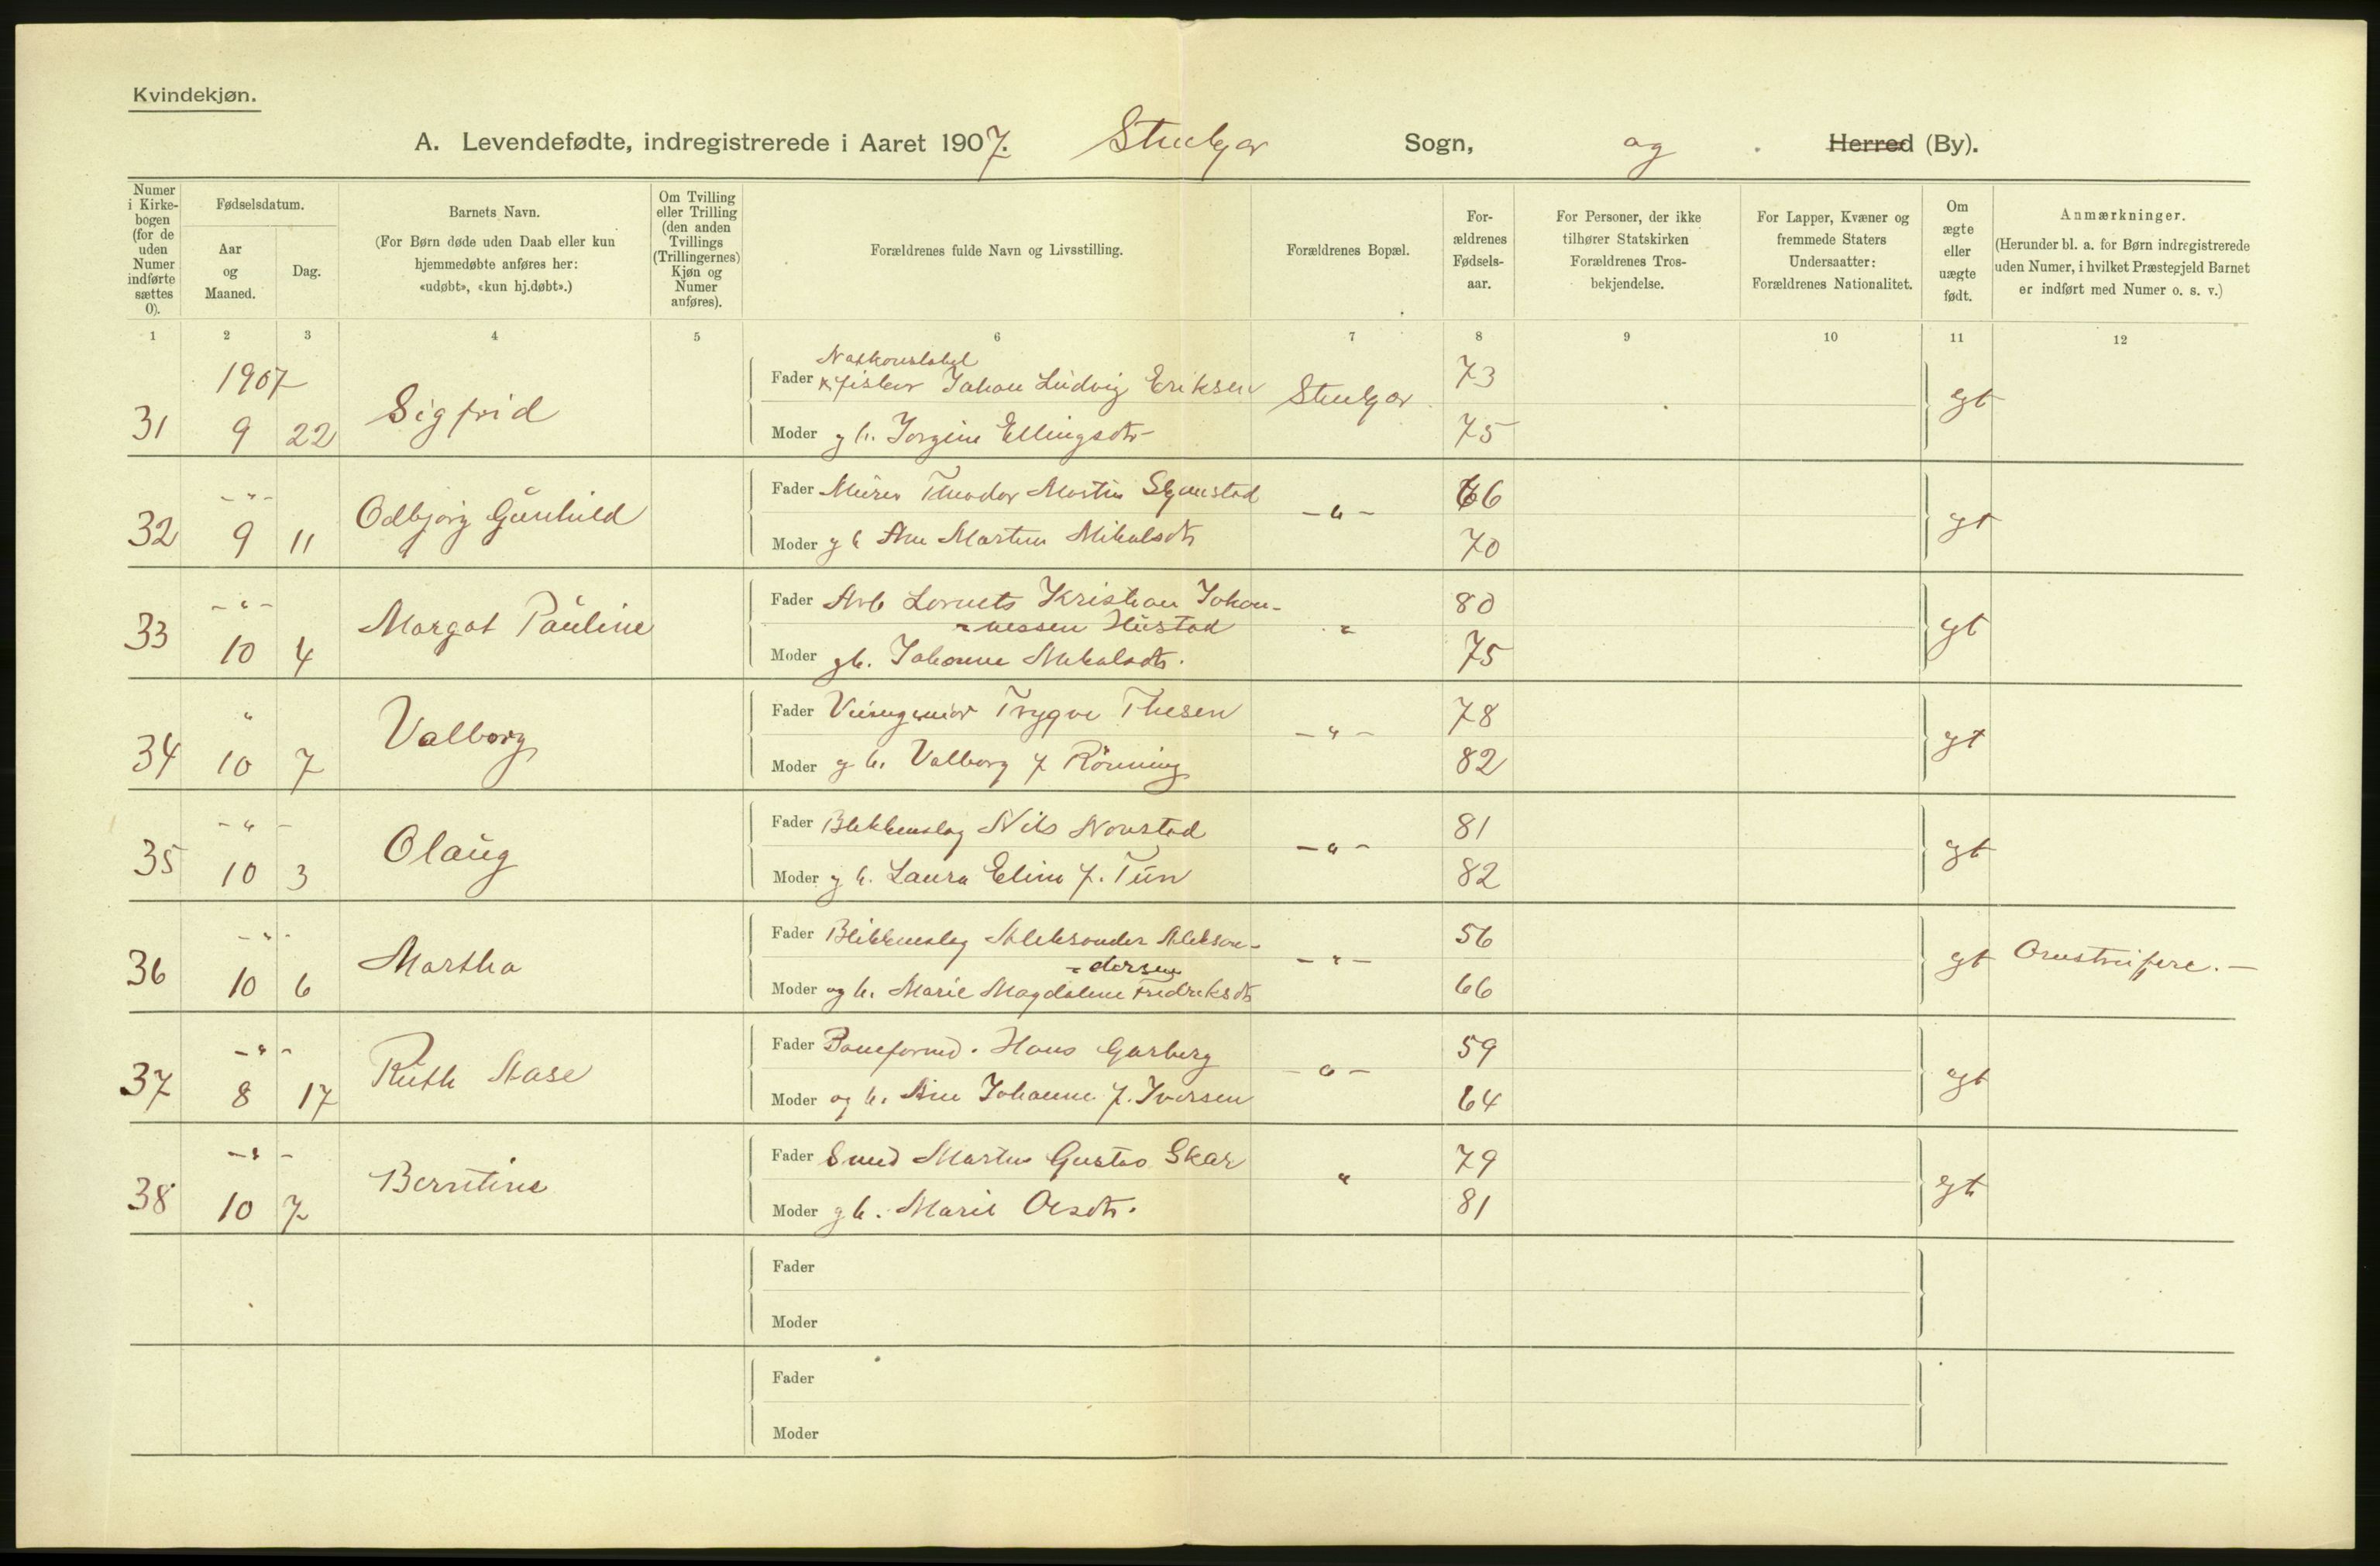 Kvindekjøn.
A. Levendefødte, indregistrerede i Aaret 1907. Stenkjær Sogn, og Herred (By).
Numer i Kirkebogen (for de uden Numer indførte sættes 0).
Fødselsdatum.
Aar og Maaned.
Dag.
Barnets Navn.
(For Børn døde uden Daab eller kun hjemmedøbte anføres her: «udøbt», «kun hj.døbt».)
Om Tvilling eller Trilling (den anden Tvillings (Trillingernes) Kjøn og Numer anføres).
Forældrenes fulde Navn og Livsstilling.
Forældrenes Bopæl.
Forældrenes Fødselsaar.
For Personer, der ikke tilhører Statskirken Forældrenes Trosbekjendelse.
For Lapper, Kvæner og fremmede Staters Undersaatter: Forældrenes Nationalitet.
Om ægte eller uægte født.
Anmærkninger.
(Herunder bl. a. for Børn indregistrerede uden Numer, i hvilket Præstegjeld Barnet er indført med Numer o. s. v.)
1 2 3 4 5 6 7 8 9 10 11 12
1907
Natkonstabel
31 9 22 Sigfrid Fader Johan Ludvig Eriksen 73 egt
Moder g h. Jorgine Ellingsdtr 75
32 9 11 Odbjørg Gunhild Fader Murer Theodor Martin -"- 66 egt
Moder g h Martin Mikalsdtr 70
33 10 4 Margot Pauline Fader Arb Kristian Johan- " 80 egt
-nessen Hustad
Moder g h. Johanne Mikalsdtr. 75
34 10 7 Valborg Fader Trygve Thesen -"- 78 egt
Moder g h. Valborg f Rönning 82
35 10 3 Olaug Fader Blikkenslag Nils -"- 81 egt
Moder g h. Laura f. 82
36 10 6 Martha Fader Blikkenslag Aleksander Aleksan- -"- 56 egt
-dersen
Moder og h. Marie Magdalene Fredriksdtr 66
37 8 17 Ruth Aase Fader Baneformd. Hans Garberg -"- 59 egt
Moder og h. Johanne f. Iversen 64
38 10 7 Berntine Fader Smed Martin Gustav Skar " 79 egt
Moder g h. Marie 81
Fader
Moder
Fader
Moder